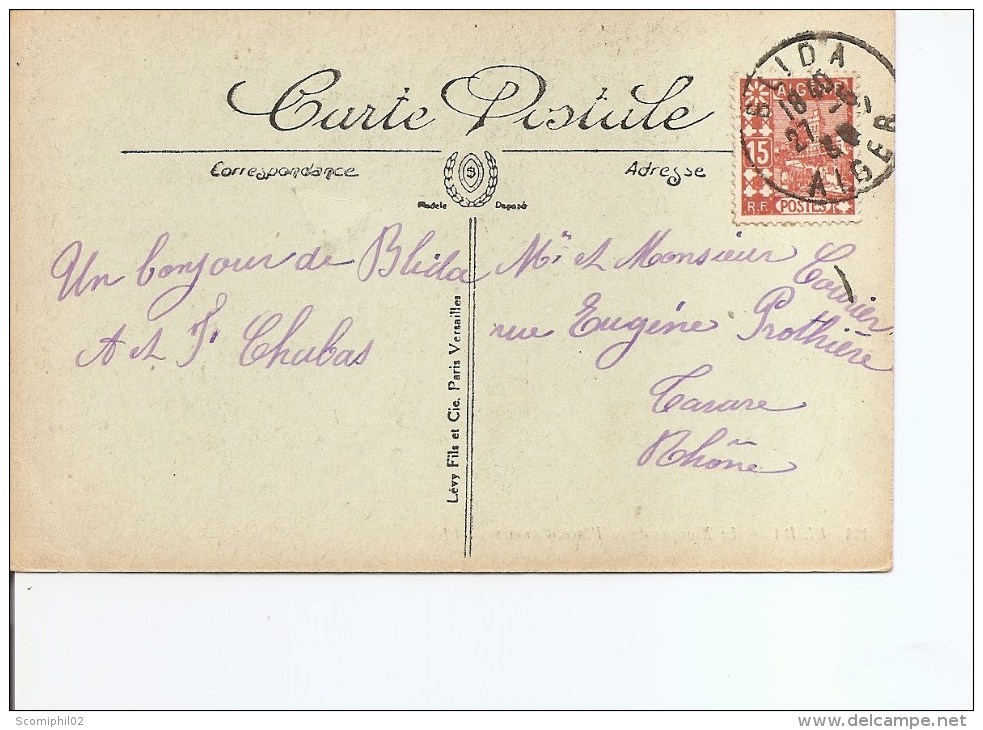 Carte Postale
Correspondance
Adresse
Modèle Déposé
BLIDA
ALGER
18
27
ALGERIE
15
R.F. POSTES
Un bonjour de Blida
A et F. Chabas
Lévy Fils et Cie. Paris Versailles
Mr et Monsieur Courier
rue Eugéne Prothière
Tarare
Rhône
Scomiphil02
www.delcampe.net